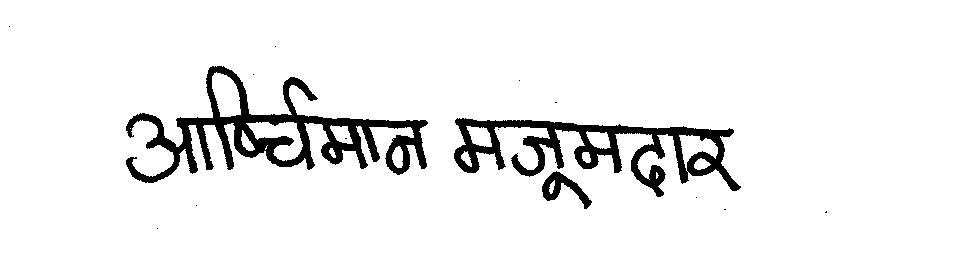 आर्ष्चिमान मजूमदार